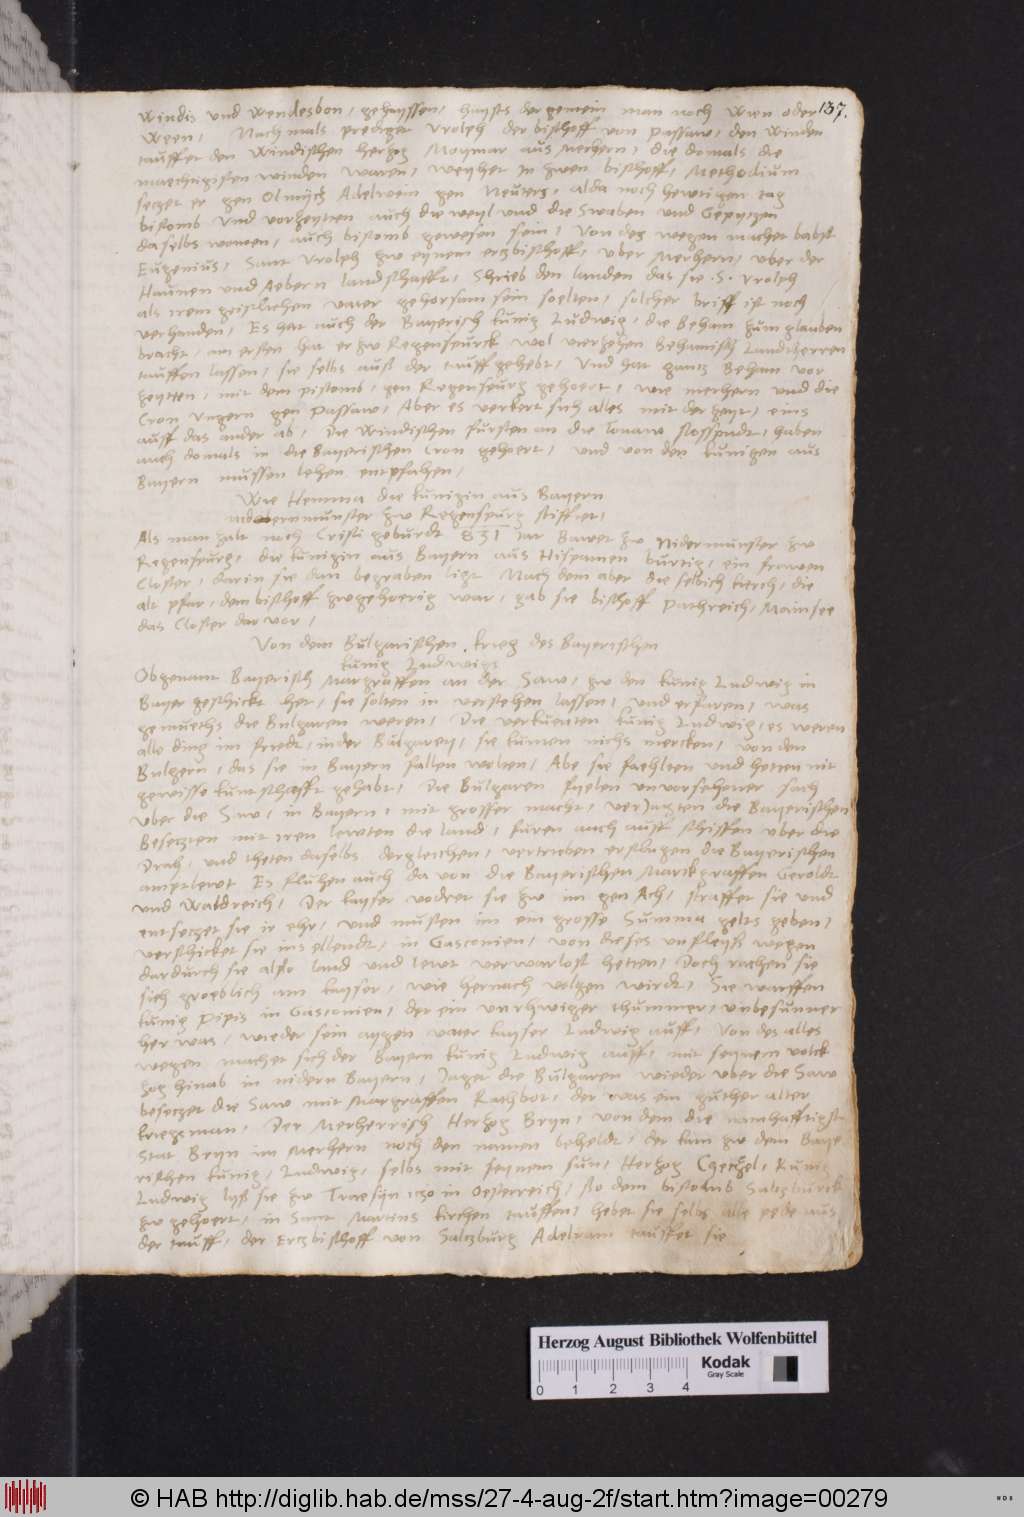 137.
Windis und Wendesbon, gehayssen, haysts der gemein man noch Wien oder
Ween, Nachmals prediget Vrolph der bisthoff von passaw, den Winden
tauffet den Windisthen herzog Moymar aus Mechern, die domals die
maechtigisten winden waren, weyhet In zwen bisthoff, Methodium
seczet er gen Olmücz Adelwein gen Neutercz, alda noch hewtigen tag
bistomb und vorzeytten auch die weyl und die Swaben und Gepyczen
daselbs wonten, auch bistomb gewesen sein, Von des wegen machet babst
Eugenius, Sant Vrolph zw eynem erczbisthoff, vber Merhern, vber der
Haunen und Aebern landthafft, Shrieb den landen das sie .S. Vrolph
als irem geistlichen vater gehorsam sein soelten, solcher briff ist noch
verhanden, Es hat auch der Bayerisch kunig Ludwig, die Beham zum glauben
bracht, am ersten hat er zw Regenspurck wol vierzehen Behamisch Landtherren
tauffen lassen, sie selbs aust der tauff gehebt, Und hat gantz Beham vor
zeytten, mit dem pistomb, gen Regenspurg gehoert, wie merhern und die
Cron Vngern gen Passaw, Aber es verkert sich alles mit der zeyt, eins
auff das ander ab, Die Windisthen fursten an die Tonaw stosspudt, haben
auch domals in die Bayeristhen Cron gehoert, und von den kunigen aus
Bayern mussen lehen entpfahen,
Wie Hemma die kunigin aus Bayern
nidernmunster zw Regenspurg stifftet,
Als man zalt nach Cristi geburdt 831 Iar Bawet zw Nidermunster zw
Regenspurg, die kunigin aus Bayern aus Hispanien burtig, ein frawen
Closter, darin sie dan begraben ligt Nach dem aber die selbich kirch, die
alt pfar, dem bisthoff zwgehoerig war, gab sie bisthoff Pathreich, Mainsee
das Closter darvor,
Von dem Bulgaristhen krieg des Bayeristhen
kunig Ludwigs
Obgenant Bayerisch Margraffen an der Saw, zw den kunig Ludwig in
Bayer geschickt her, sie solten in verstehen lassen, und erfaren, was
gemueths die Bulgaren weren, Die verkuenten kunig Ludwig, es weren
alle ding im friedt, in der Bulgarey, sie kunten nichs mercken, von den
Bulgern, das sie in Bayern fallen wolten, Abe sie faehlten und hetten nit
gewisse kuntshafft gehabt, Die Bulgaren fyelen unvorsehener sach
vber die Saw, in Bayern, mit grosser macht, verJagten die Bayeristhen
Beseczten mit iren lewten die land, furen auch auff schiffen vber die
Drah, und theten daselbs dergleichen, vertrieben erslugen die Bayeristhen
amptlewt Es fluhen auch da von die Bayeristhen Marckgraffen Geroldt
und Waldreich, Der kayser vodret sie zw im gen Ach, straffet sie und
entseczet sie ir ehr, und musten im ein grosse Summa gelts geben,
versthicket sie ins ellendt, in Gasconien, von dieses unfleyß wegen
dardurch sie also land und lewt verwarlost hetten, Doch rachen sie
sich groeblich am kayser, wie hernach volgen wirdt, Sie warffen
kunig Pipis in Gasconien, der ein unrhwiger thummer, unbesunner
her was, wieder sein aygen vater kayser Ludwig auff, Von des alles
wegen machet sich der Bayern kunig Ludwig auff, mit seynem volck
zog hinab in nidern Bayern, Jaget die Bulgaren wieder vber die Saw
beseczet die Saw mit Margraffen Rathbot, der was ein guther alter
kriegsman, Der Merherrisch Herzog Bryn, von dem die namhafftigst
Stat Bryn im Merhern noch den namen beheldt, der kam zw dem Baye
risthen kunig, Ludwig, selbs mit seynem sun, Herzog Czechel, Kunig
Ludwig lyß sie zw Traesyn 1030 in Oesterreich, so dem bistomb Salczburck
zw gehoert, in Sant Martins kirchen tauffen, hebet sie selbs alle pede aus
der tauff, der Erczbisthoff von Salczburg Adelram tauffet sie
Herzog August Bibliothek Wolfenbüttel
Kodak
Gray Scale
0 1 2 3 4
© HAB http://diglib.hab.de/mss/27-4-aug-2f/start.htm?image=00279